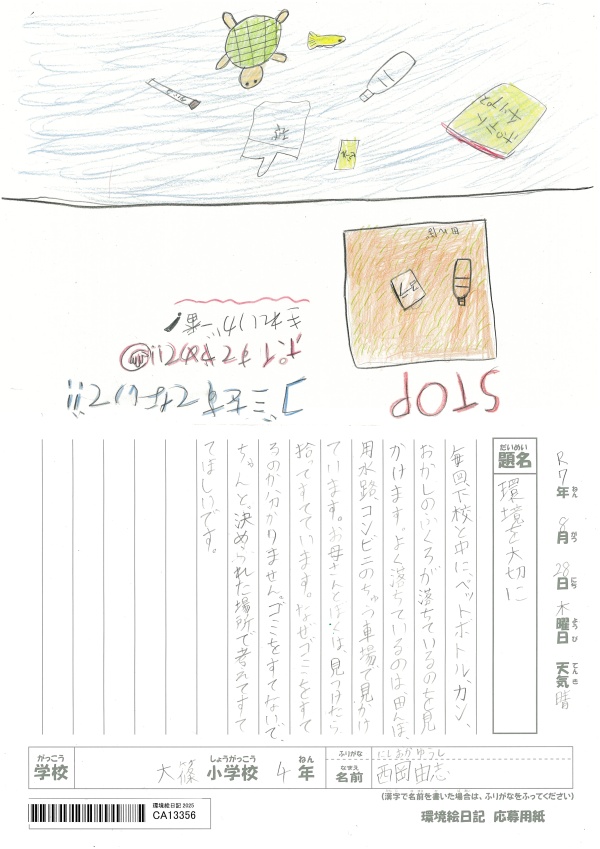 ポテト
チップス
田んぼ
STOP
ゴミをすてないで!!
ポイすてやめて!!
きれいなちきゅう
R7年 8月 28日 木曜日 天気 晴
ねん がつ にち ようび てんき
だいめい
題名
環境を大切に
毎回、下校と中に、ペットボトル、カン、
おかしのふくろが落ちているのを見
かけます。よく落ちているのは、田んぼ、
用水路、コンビニのちゅう車場で見かけ
ています。お母さんとぼくは、見つけたら
拾ってすてています。なぜゴミをすて
るのか分かりません。ゴミをすてないで、
ちゃんと、決められた場所で考えてすて
てほしいです。
がっこう しょうがっこう ねん
学校 大篠 小学校 4年
ふりがな にしおかゆうし
なまえ
名前 西岡由志
(漢字で名前を書いた場合は、ふりがなをふってください)
環境絵日記 2025
CA13356
環境絵日記 応募用紙